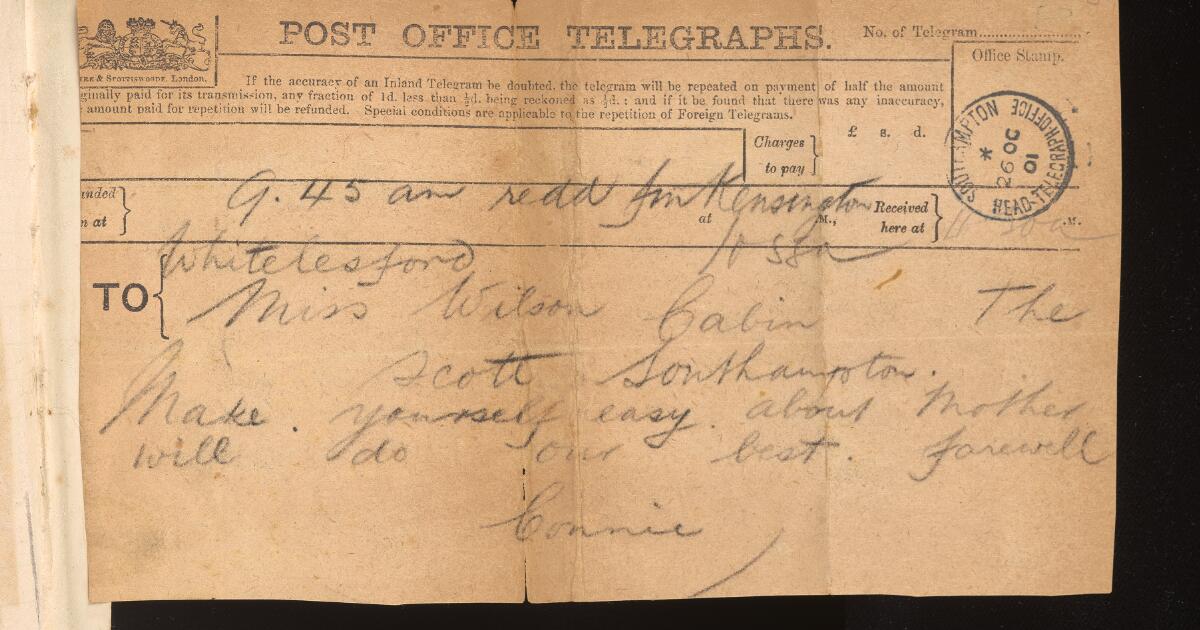 POST OFFICE TELEGRAPHS.
No. of Telegram
Office Stamp.
& Scottiswoode, London.
If the accuracy of an Inland Telegram be doubted, the telegram will be repeated on payment of half the amount
ginally paid for its transmission, any fraction of 1d. less than ½d. being reckoned as ½d.; and if it be found that there was any inaccuracy,
amount paid for repetition will be refunded. Special conditions are applicable to the repetition of Foreign Telegrams.
Charges to pay } £ s. d.
SOUTHAMPTON HEAD-TELEGRAPH-OFFICE
* 26 OC 01
nded
n at }
9.45 am redd fm Kensington
at M., Received here at } .M.
Whittlesford
TO { Miss Wilson Cabin The
Scott Southampton.
Make yourself easy about Mother
will do our best. farewell
Connie